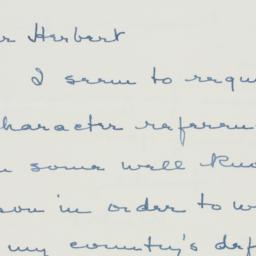 r Herbert
I seem to requ
haracter referen
some well kno
son in order to w
my country's def